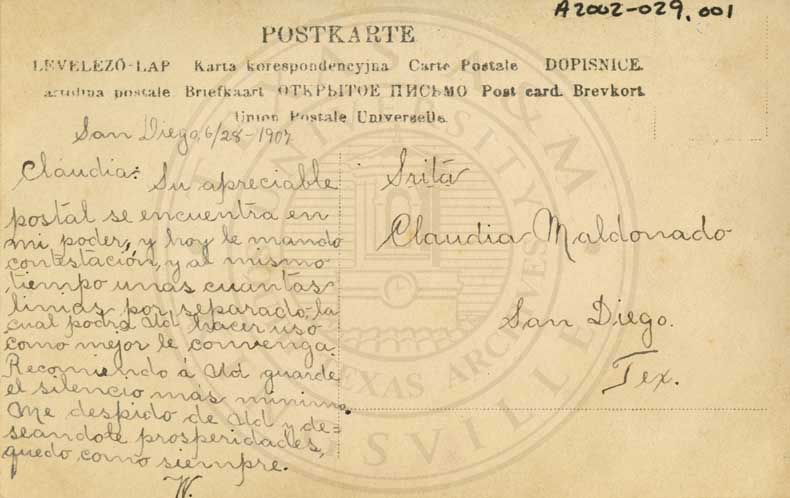 A2002-029.001
POSTKARTE
LEVELEZŐ-LAP Karta korespondencyjna Carte Postale DOPISNICE.
artolina postale Briefkaart ОТКРЫТОЕ ПИСЬМО Post card. Brevkort.
Union Postale Universelle.
San Diego, 6/28-1907
Claudia: Su apreciable
postal se encuentra en
mi poder, y hoy le mando
contestación, y al mismo
tiempo unas cuantas
linias por separado, la
cual podrá Ud hacer uso
como mejor le convenga.
Recomiendo á Ud guarde
el silencio más minimo.
Me despido de Ud y de-
seandote prosperidades,
quedo como siempre.
W.
Srita
Claudia Maldonado
San Diego.
Tex.
TEXAS A&M
UNIVERSITY
TEXAS ARCHIVES